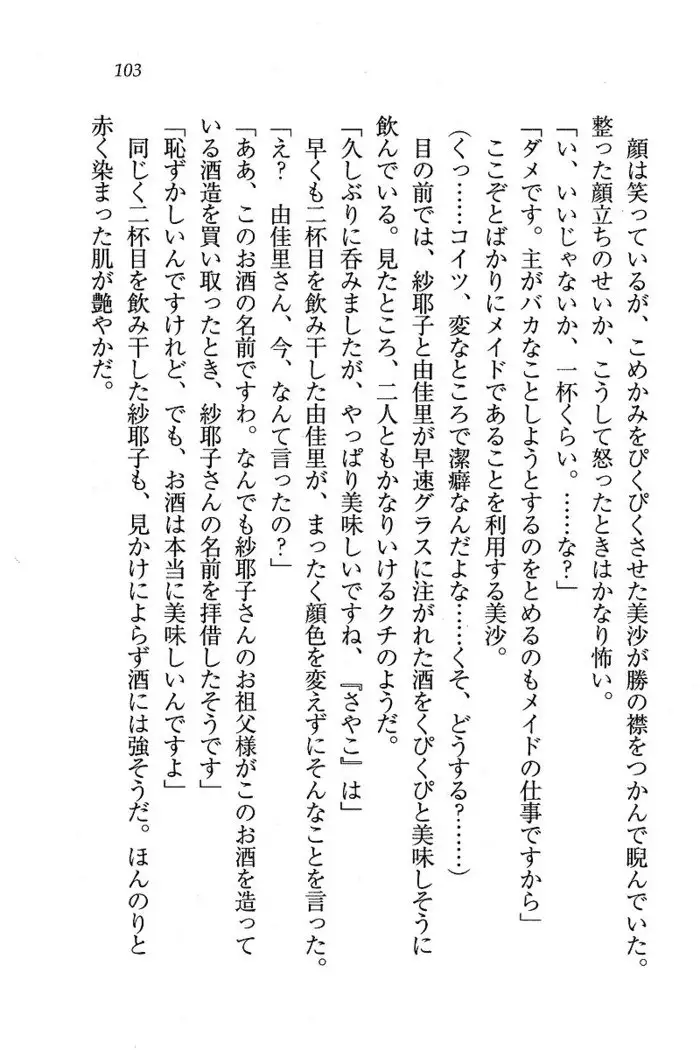 103
顔は笑っているが、こめかみをぴくぴくさせた美沙が勝の襟をつかんで睨んでいた。
整った顔立ちのせいか、こうして怒ったときはかなり怖い。
「い、いいじゃないか、一杯くらい。……な?」
「ダメです。主がバカなことしようとするのをとめるのもメイドの仕事ですから」
ここぞとばかりにメイドであることを利用する美沙。
(くっ……コイツ、変なところで潔癖なんだよな……くそ、どうする?……)
目の前では、紗耶子と由佳里が早速グラスに注がれた酒をくぴくぴと美味しそうに
飲んでいる。見たところ、二人ともかなりいけるクチのようだ。
「久しぶりに呑みましたが、やっぱり美味しいですね、『さやこ』は」
早くも二杯目を飲み干した由佳里が、まったく顔色を変えずにそんなことを言った。
「え? 由佳里さん、今、なんて言ったの?」
「ああ、このお酒の名前ですわ。なんでも紗耶子さんのお祖父様がこのお酒を造って
いる酒造を買い取ったとき、紗耶子さんの名前を拝借したそうです」
「恥ずかしいんですけれど、でも、お酒は本当に美味しいんですよ」
同じく二杯目を飲み干した紗耶子も、見かけによらず酒には強そうだ。ほんのりと
赤く染まった肌が艶やかだ。